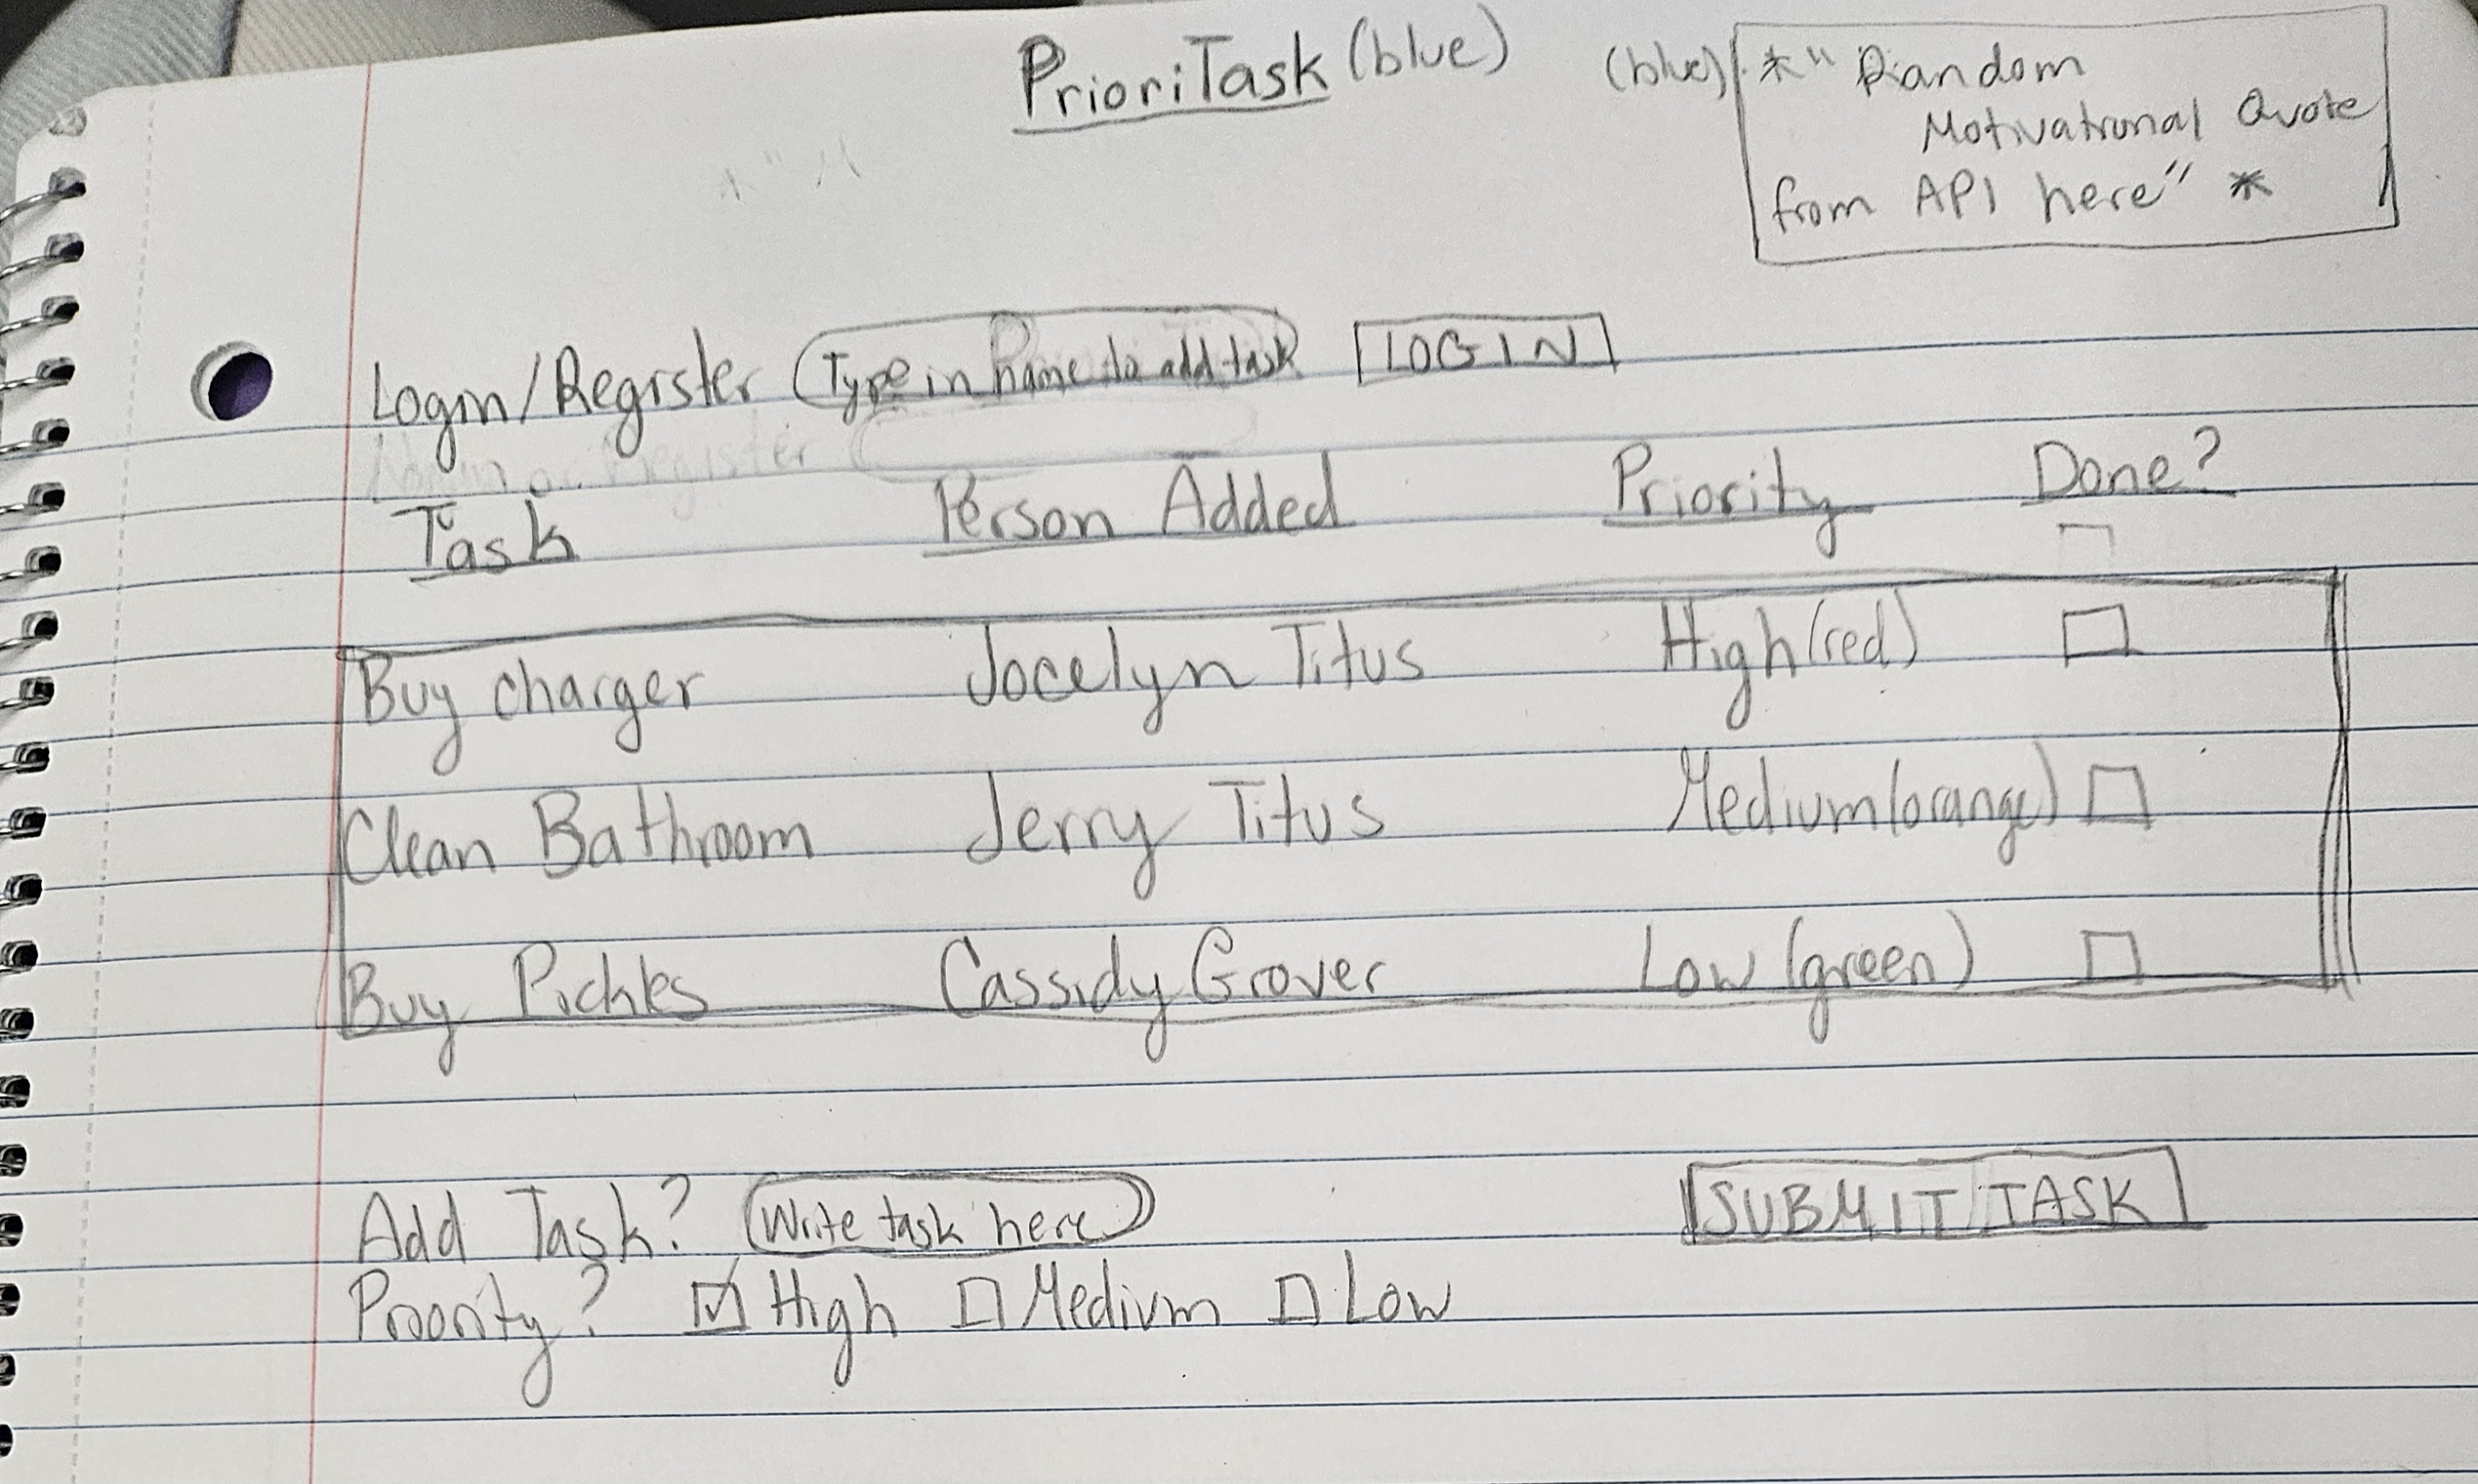 PrioriTask (blue)
(blue) * " Random
Motivational Quote
from API here" *
Login/Register Type in name to add task LOGIN
Task Person Added Priority Done?
Buy charger Jocelyn Titus High (red)
Clean Bathroom Jerry Titus Medium (orange)
Buy Pickles Cassidy Grover Low (green)
Add Task? Write task here SUBMIT TASK
Priority? High Medium Low